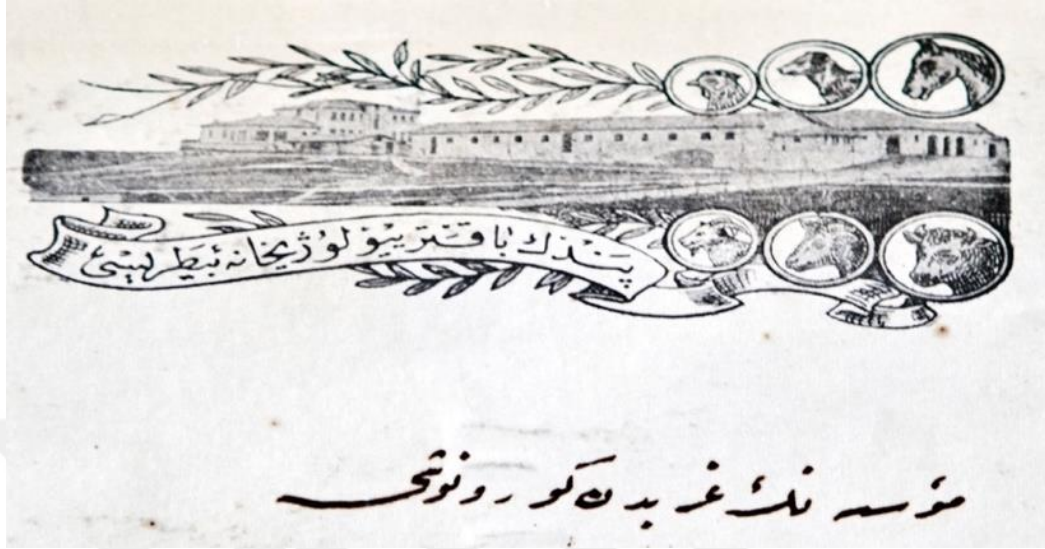 پندك باقتريولوژيخانهٔ بيطريسى
مؤسسه نك غربدن كورونوشى